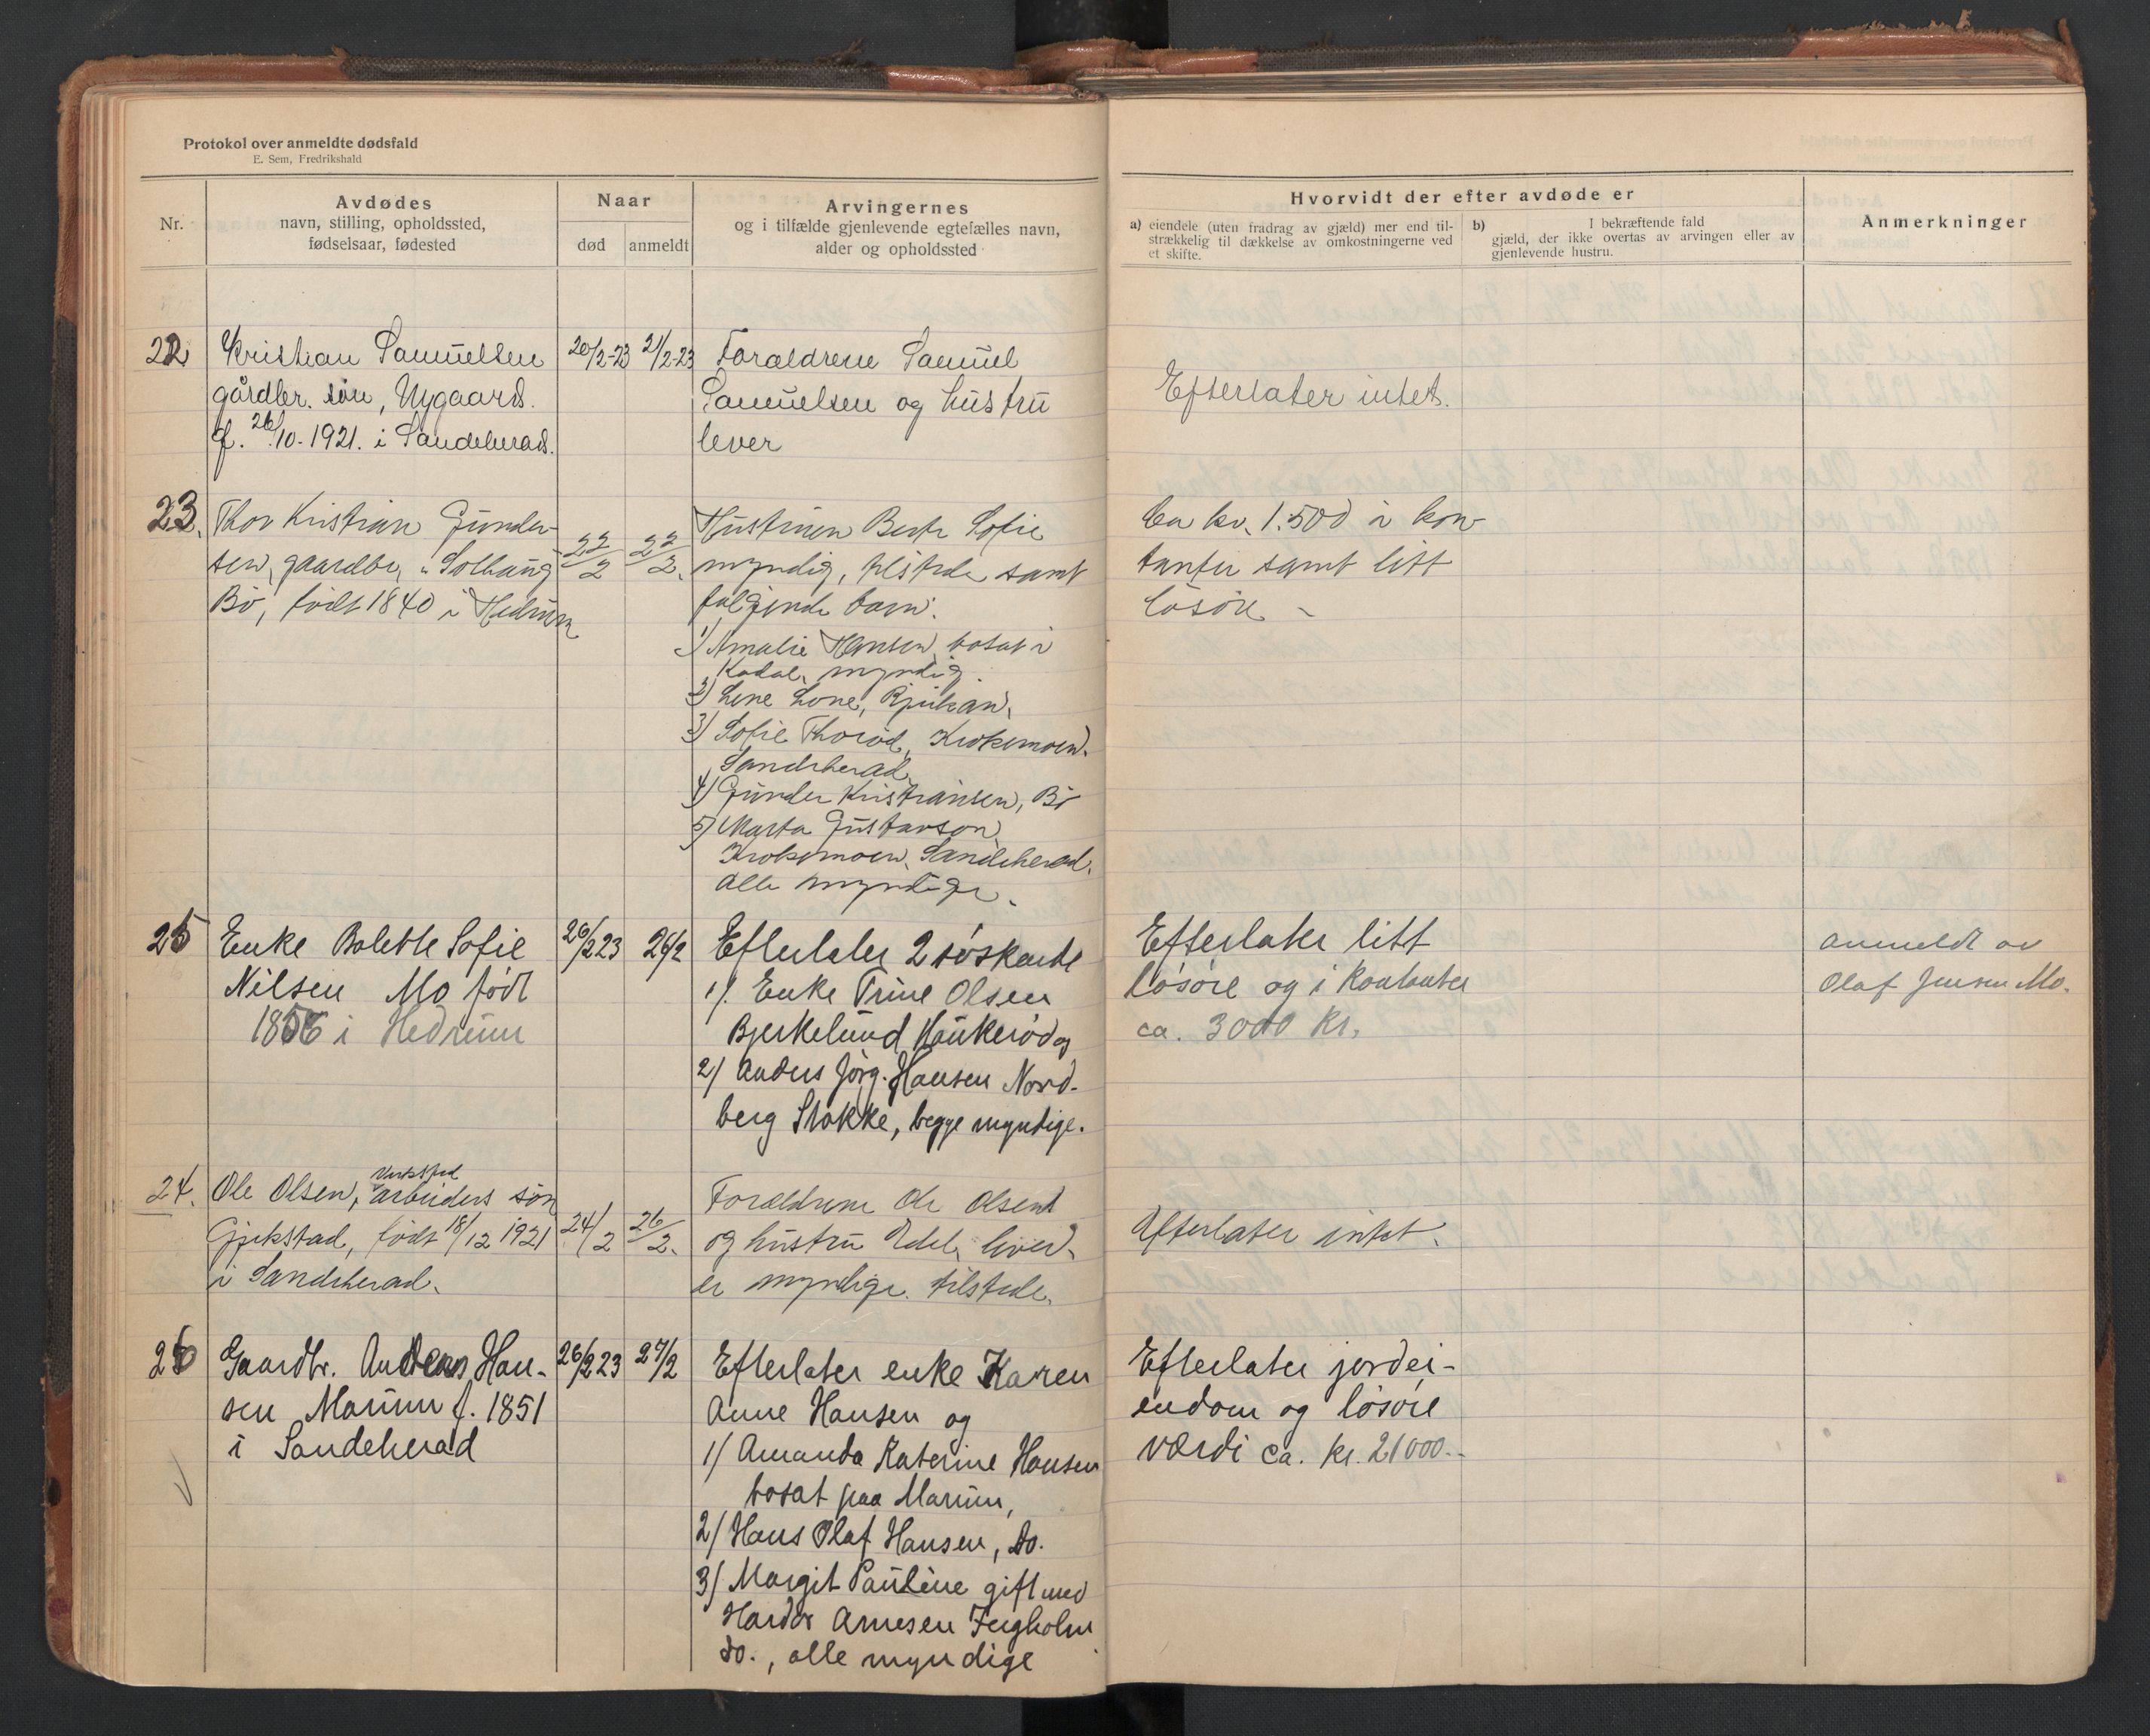 Protokol over anmeldte dødsfald
E. Sem, Fredrikshald
Nr.
Avdødes
navn, stilling, opholdssted,
fødselsaar, fødested
Naar
død
anmeldt
Arvingernes
og i tilfælde gjenlevende egtefælles navn,
alder og opholdssted
Hvorvidt der efter avdøde er
a) eiendele (uten fradrag av gjæld) mer end til-
strækkelig til dækkelse av omkostningerne ved
et skifte.
b) I bekræftende fald
gjæld, der ikke overtas av arvingen eller av
gjenlevende hustru.
Anmerkninger
22
Kristian Samuelsen
gårdbr. søn, Nygaard.
f. 26/10-1921. i Sandeherad.
20/2-23
21/2-23
Forældrene Samuel
Samuelsen og hustru
lever
Efterlater intet.
23.
Thor Kristian Gunder-
sen, gaardbr, "Solhaug
Bø, født 1840 i Hedrum
22/2
22/2.
Hustruen Berte Sofie
myndig, tilstede samt
følgende barn:
1) Amalie Hansen, bosat i
Kodal, myndig.
2) Lene Lone, Rjukan,
3) Sofie Thorød, Krokemoen.
Sandeherad,
4) Gunder Kristiansen, Bø
5) Marta Gustavson,
Krokemoen, Sandeherad.
alle myndige.
Ca kr. 1.500 i kon-
tanter samt litt
løsøre –
25
Enke Bolette Sofie
Nilsen Mo født
1856 i Hedrum
26/2 23
26/2
Efterlater 2 søskende
1/. Enke Trine Olsen
Bjerkelund Haukerød og
2/ Anders Jørg. Hansen Nord-
berg Stokke, begge myndige.
Efterlater litt
løsøre og i kontanter
ca. 3000 kr.
anmeldt av
Olaf Jensen Mo.
24.
Ole Olsen, verksted
arbeiders søn
Gjekstad, født 18/12 1921
i Sandeherad.
24/2
26/2.
Forældrene Ole Olsen
og hustru Edel, lever,
er myndige. tilstede.
Efterlater intet.
26
Gaardbr. Anders Han-
sen Marum f. 1851
i Sandeherad
26/2 23
27/2
Efterlater enke Karen
Anne Hansen og
1/ Amanda Katerine Hansen
bosat paa Marum,
2/ Hans Olaf Hansen, do.
3/ Margit Pauline gift med
Arnesen
do., alle myndige
Efterlater jordei-
endom og løsøre
værdi ca. kr. 21000.-